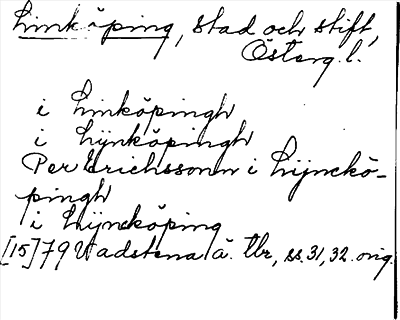 Linköping, stad och stift,
Österg. l.
i Linköpingh
i Lijnköpingh
Per Erichssonn i Lijnckö-
pingh
i Lijncköping
[15]79 Vadstena ä. Tbr, ss. 31, 32. orig.